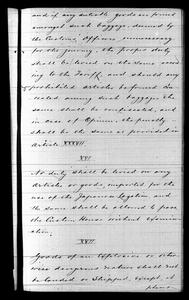 and if any dutiable goods are found
amongst such baggage, deemed by
the Customs' Officers unnecessary
for the journey, the proper duty
shall be levied on the same accord-
ing to the Tariff, and should any
prohibited articles be found se-
creted among such baggage, the
same shall be confiscated, and
in case of Opium, the penalty
shall be the same as provided in
Article XXXVII.
XVI
No duty shall be levied on any
articles or goods, imported for the
use of the Japanese Legation and
the same shall be allowed to pass
the Custom House without examina-
tion.
XVII
Goods of an Explosive or other-
wise dangerous nature shall not
be landed or shipped except at
places